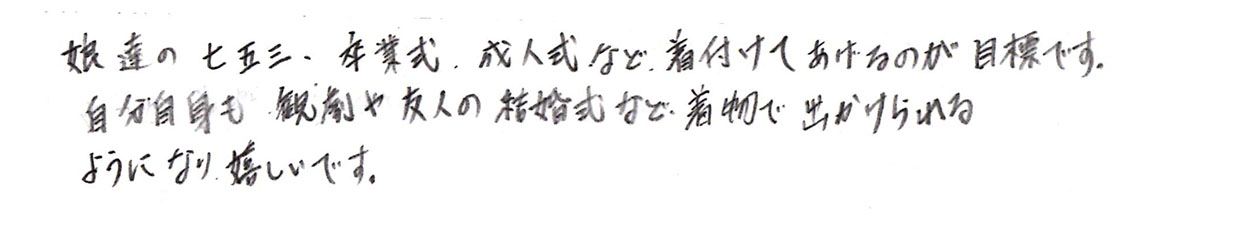 娘達の七五三、卒業式、成人式など、着付けてあげるのが目標です。
自分自身も観劇や友人の結婚式など、着物で出かけられる
ようになり、嬉しいです。